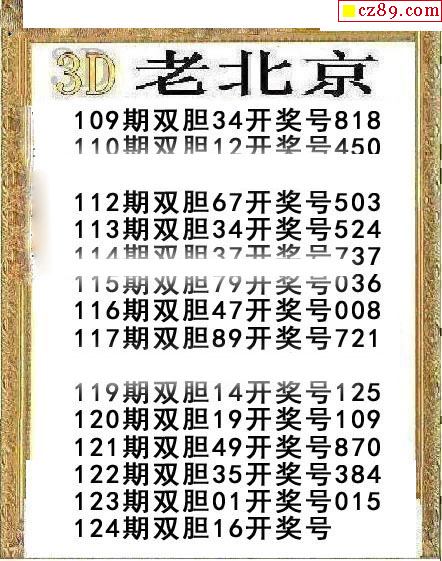 cz89.com
3D 老北京
109期双胆34开奖号818
110期双胆12开奖号450
112期双胆67开奖号503
113期双胆34开奖号524
114期双胆37开奖号737
115期双胆79开奖号036
116期双胆47开奖号008
117期双胆89开奖号721
119期双胆14开奖号125
120期双胆19开奖号109
121期双胆49开奖号870
122期双胆35开奖号384
123期双胆01开奖号015
124期双胆16开奖号